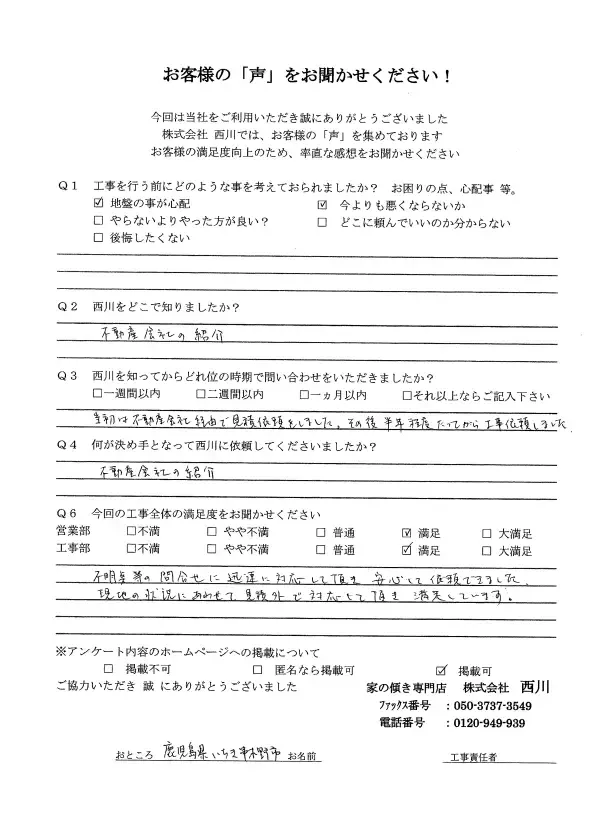 お客様の「声」をお聞かせください！
今回は当社をご利用いただき誠にありがとうございました
株式会社 西川では、お客様の「声」を集めております
お客様の満足度向上のため、率直な感想をお聞かせください
Q1 工事を行う前にどのような事を考えておられましたか？ お困りの点、心配事 等。
☑ 地盤の事が心配 ☑ 今よりも悪くならないか
□ やらないよりやった方が良い？ □ どこに頼んでいいのか分からない
□ 後悔したくない
Q2 西川をどこで知りましたか？
不動産会社の紹介
Q3 西川を知ってからどれ位の時期で問い合わせをいただきましたか？
□一週間以内 □二週間以内 □一ヵ月以内 □それ以上ならご記入下さい
当初は不動産会社経由で見積依頼をしました。その後半年程度たってから工事依頼しました
Q4 何が決め手となって西川に依頼してくださいましたか？
不動産会社の紹介
Q6 今回の工事全体の満足度をお聞かせください
営業部 □不満 □ やや不満 □ 普通 ☑ 満足 □ 大満足
工事部 □不満 □ やや不満 □ 普通 ☑ 満足 □ 大満足
不明点等の問合せに迅速に対応して頂き安心して依頼できました。
現地の状況にあわせて見積外で対応して頂き満足しています。
※アンケート内容のホームページへの掲載について
□ 掲載不可 □ 匿名なら掲載可 ☑ 掲載可
ご協力いただき 誠 にありがとうございました
家の傾き専門店 株式会社 西川
ﾌｧｯｸｽ番号 ：050-3737-3549
電話番号 ：0120-949-939
おところ 鹿児島県いちき串木野市 お名前
工事責任者